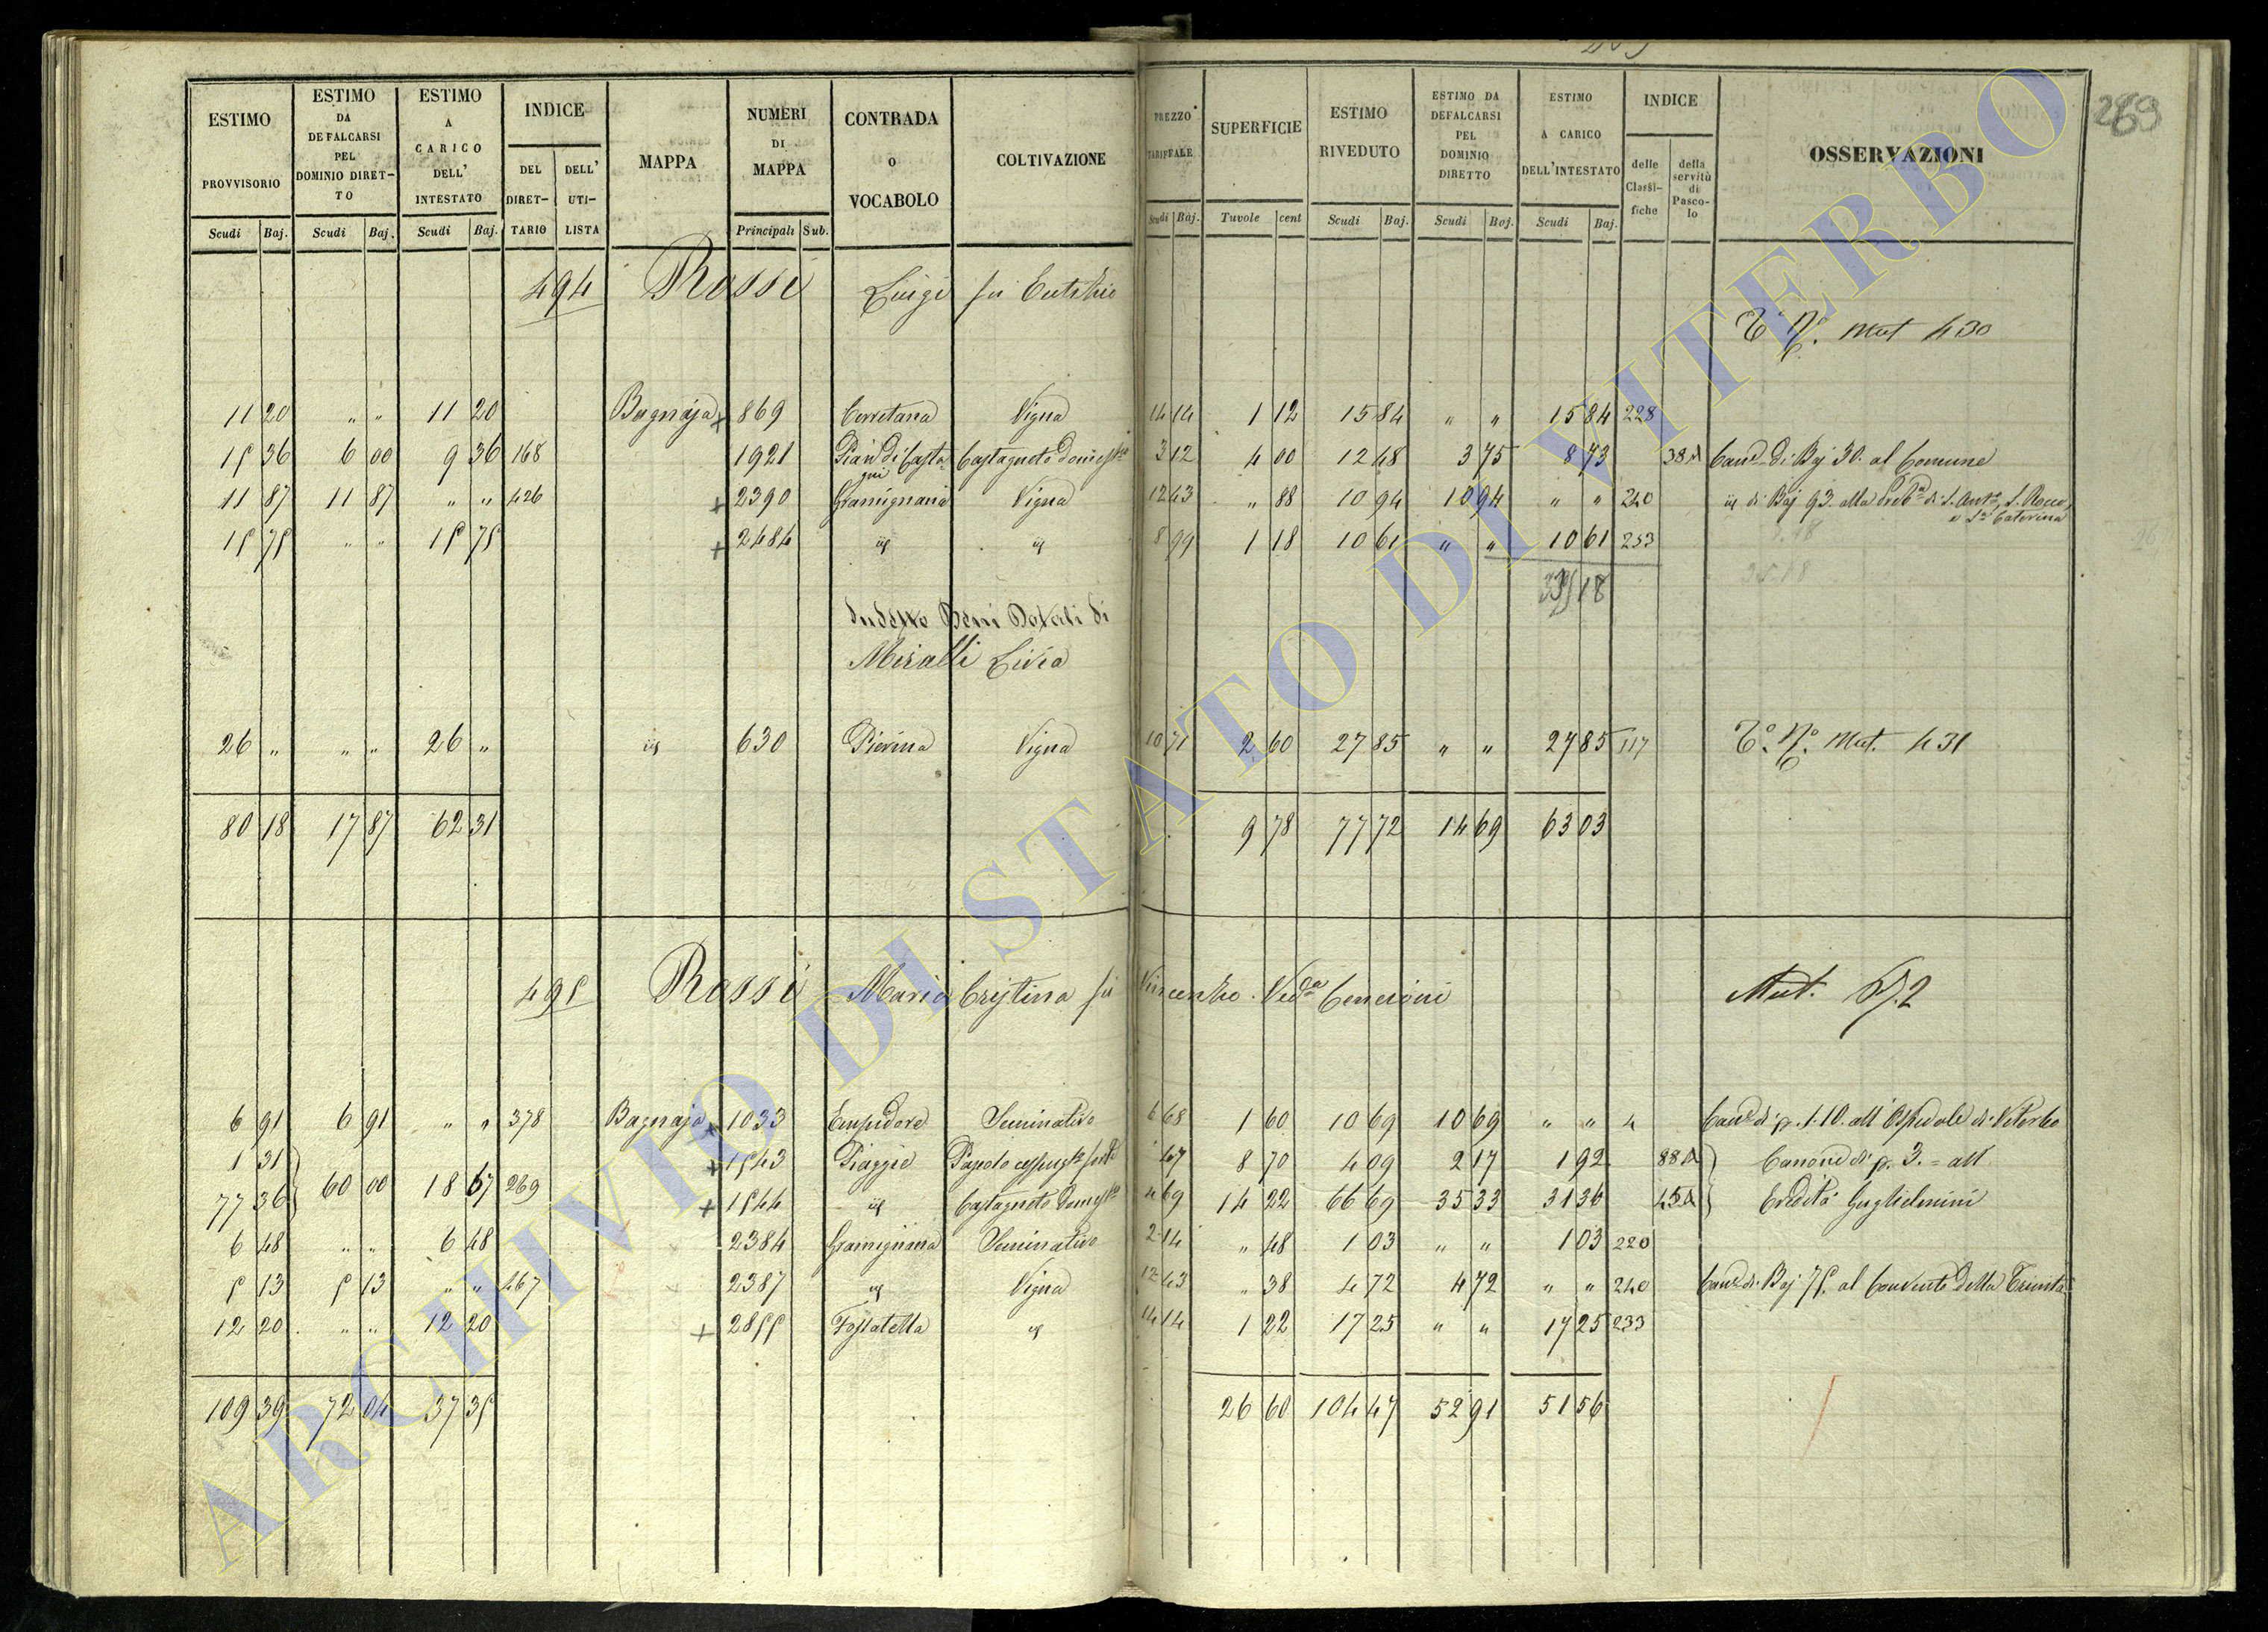 289
ESTIMO PROVVISORIO | ESTIMO DA DEFALCARSI PEL DOMINIO DIRETTO | ESTIMO A CARICO DELL' INTESTATO | INDICE DEL DIRETTARIO | DELL' UTILISTA | MAPPA | NUMERI DI MAPPA | CONTRADA o VOCABOLO | COLTIVAZIONE | PREZZO TARIFFALE | SUPERFICIE | ESTIMO RIVEDUTO | ESTIMO DA DEFALCARSI PEL DOMINIO DIRETTO | ESTIMO A CARICO DELL'INTESTATO | INDICE delle Classifiche | della servitù di Pascolo | OSSERVAZIONI
Scudi | Baj. | Scudi | Baj. | Scudi | Baj. | Principali | Sub. | Scudi | Baj. | Tavole | cent | Scudi | Baj. | Scudi | Baj. | Scudi | Baj.
494 Rossi Luigi fu
T° N°. Mut 430
11 20 | " " | 11 20 | Bagnaja + 869 | Cerretana | Vigna | 14 14 | 1 12 | 15 84 | " " | 15 84 | 228
15 36 | 6 00 | 9 36 | 168 | 1921 | Pian di Castagni | Castagneto domest | 3 12 | 4 00 | 12 48 | 3 75 | 8 73 | 38 A | Cane di Baj 30. al Comune
11 87 | 11 87 | " " | 426 | + 2390 | Gramignana | Vigna | 12 43 | " 88 | 10 94 | 10 94 | " " | 240 | id di Baj 93. alla di S. Anto, S. Rocco, e Sa Caterina
15 75 | " " | 15 75 | + 2484 | id | id | 8 99 | 1 18 | 10 61 | " " | 10 61 | 253
35 18
Sudetto Beni Dotali di
Miralli Livia
26 " | " " | 26 " | id | 630 | Pierina | Vigna | 10 71 | 2 60 | 27 85 | " " | 27 85 | 117 | T°. N°. Mut. 431
80 18 | 17 87 | 62 31 | 9 78 | 77 72 | 14 69 | 63 03
495 Rossi Maria Cristina fu Vincenzo Veda Cencioni
Mut.
6 91 | 6 91 | " " | 378 | Bagnaja + 1033 | Empidore | Seminativo | 6 68 | 1 60 | 10 69 | 10 69 | " " | 4 | Cane di p. 1.10. all' Ospedale di Viterbo
1 31 | + 1543 | Piaggie | Pascolo | 47 | 8 70 | 4 09 | 2 17 | 1 92 | 88 A | Canone di p. 3. = all
77 36 | 60 00 | 18 67 | 269 | + 1544 | id | Castagneto domest | 4 69 | 14 22 | 66 69 | 35 33 | 31 36 | 45 A | Eredità Guglielmini
6 48 | " " | 6 48 | 2384 | Gramignana | Seminativo | 2 14 | " 48 | 1 03 | " " | 1 03 | 220
5 13 | 5 13 | " " | 467 | 2387 | id | Vigna | 12 43 | " 38 | 4 72 | 4 72 | " " | 240 | Cane di Baj 75. al Convento della Trinità
12 20 | " " | 12 20 | + 2855 | Fossatella | id | 14 14 | 1 22 | 17 25 | " " | 17 25 | 233
109 39 | 72 04 | 37 35 | 26 60 | 104 47 | 52 91 | 51 56
ARCHIVIO DI STATO DI VITERBO